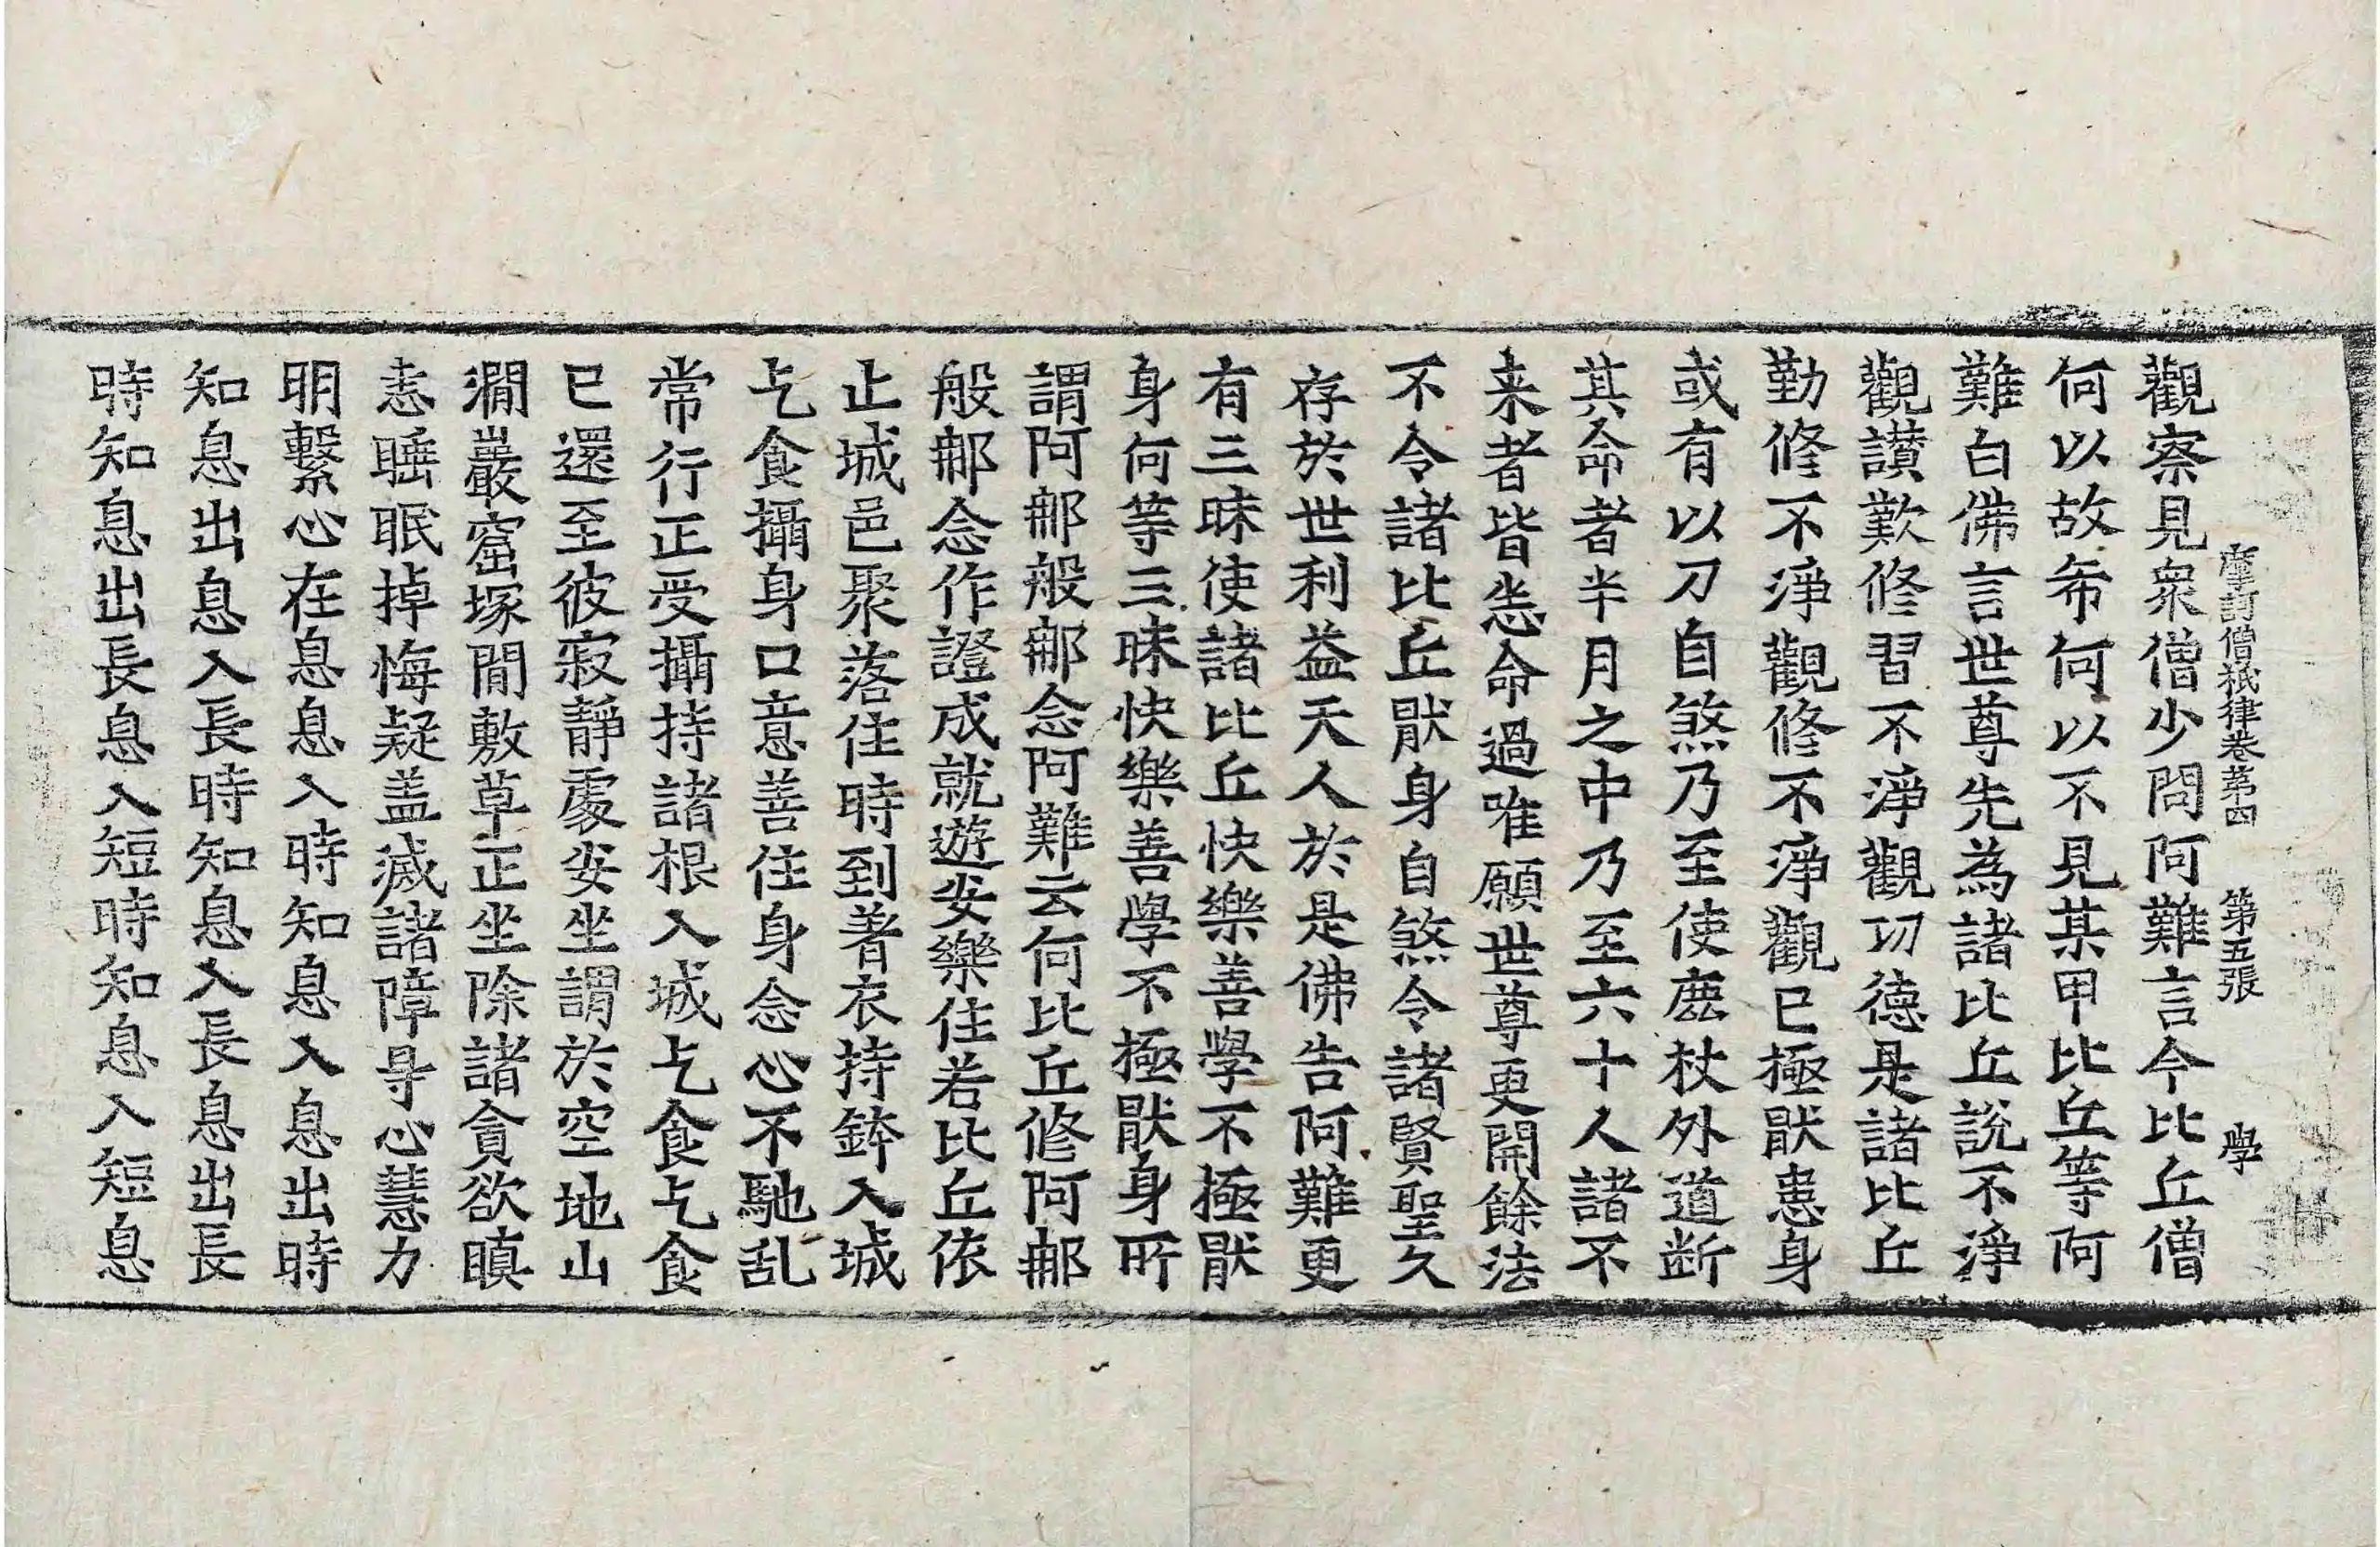 摩訶僧祇律卷第四　第五張　學
觀察見衆僧少問阿難言今比丘僧
何以故希何以不見某甲比丘等阿
難白佛言世尊先為諸比丘說不淨
觀讃歎修習不淨觀功德是諸比丘
勤修不淨觀修不淨觀已極猒患身
或有以刀自煞乃至使鹿杖外道断
其命者半月之中乃至六十人諸不
来者皆悉命過唯願世尊更開餘法
不令諸比丘猒身自煞令諸賢聖久
存於世利益天人於是佛告阿難更
有三昧使諸比丘快樂善學不極猒
身何等三昧快樂善學不極猒身所
謂阿那般那念阿難云何比丘修阿那
般那念作證成就遊安樂住若比丘依
止城邑聚落住時到著衣持鉢入城
乞食攝身口意善住身念心不馳乱
常行正受攝持諸根入城乞食乞食
已還至彼寂靜處安坐謂於空地山
澗巖窟塚間敷草正坐除諸貪欲瞋
恚睡眠掉悔疑盖滅諸障㝵心慧力
明繫心在息息入時知息入息出時
知息出息入長時知息入長息出長
時知息出長息入短時知息入短息